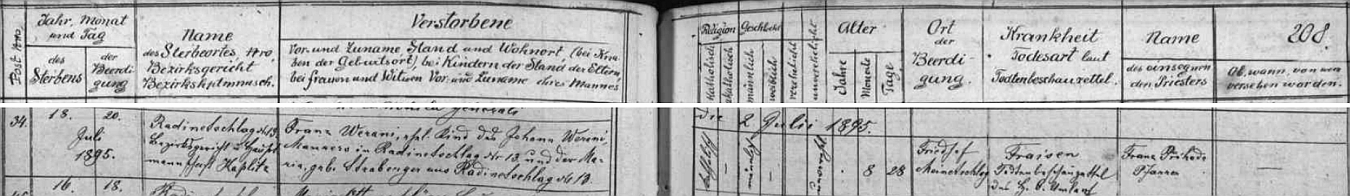 208.
Post Nro.
Jahr, Monat
und Tag
des
Sterbens
der
Beerdi-
gung
Name
des Sterbeortes, Nro,
Bezirksgericht
Bezirkshptmnnsch.
Verstorbene
Vor- und Zuname, Stand und Wohnort, (bei Kin-
dern der Geburtsort), bei Kindern der Stand der Eltern,
bei Frauen und Witwen Vor- und Zuname ihres Mannes
Religion
katholisch
akatholisch
Geschlecht
männlich
weiblich
verehelicht
unverehelicht
Alter
Jahre
Monate
Tage
Ort
der
Beerdi-
gung.
Krankheit
Todesart laut
Todtenbeschauzettel.
Name
des einsegnen-
den Priesters
Ob, wann, von wem
versehen worden.
die 2 Julii 1895.
34.
18.
20.
Juli
1895.
Radinetschlag Nr 13.
Bezirksgericht u. Haupt-
mannschaft Kaplitz
Franz Werani, ehl. Kind des Johann Werani,
Maurers in Radinetschlag Nr 13 und der Ma-
ria, geb. aus Radinetschlag Nr 13.
katholisch
–
männlich
–
–
8
28
Friedhof
Meinetschlag
Fraisen
Franz
Pfarrer
—
16.
18.